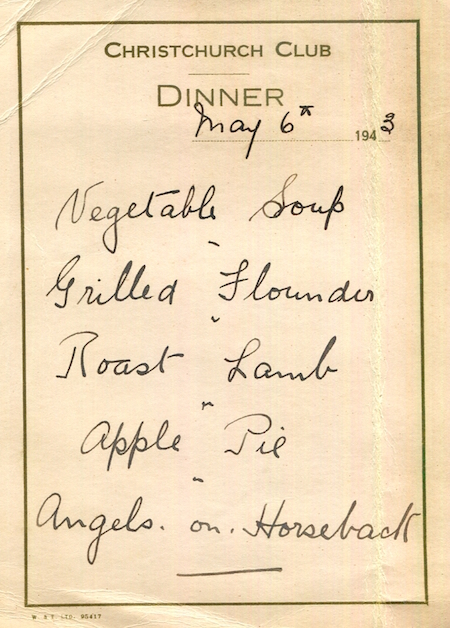 CHRISTCHURCH CLUB
DINNER
May 6th 1943
Vegetable Soup
Grilled Flounder
Roast Lamb
Apple Pie
Angels. on. Horseback
W. & T. LTD. 95417